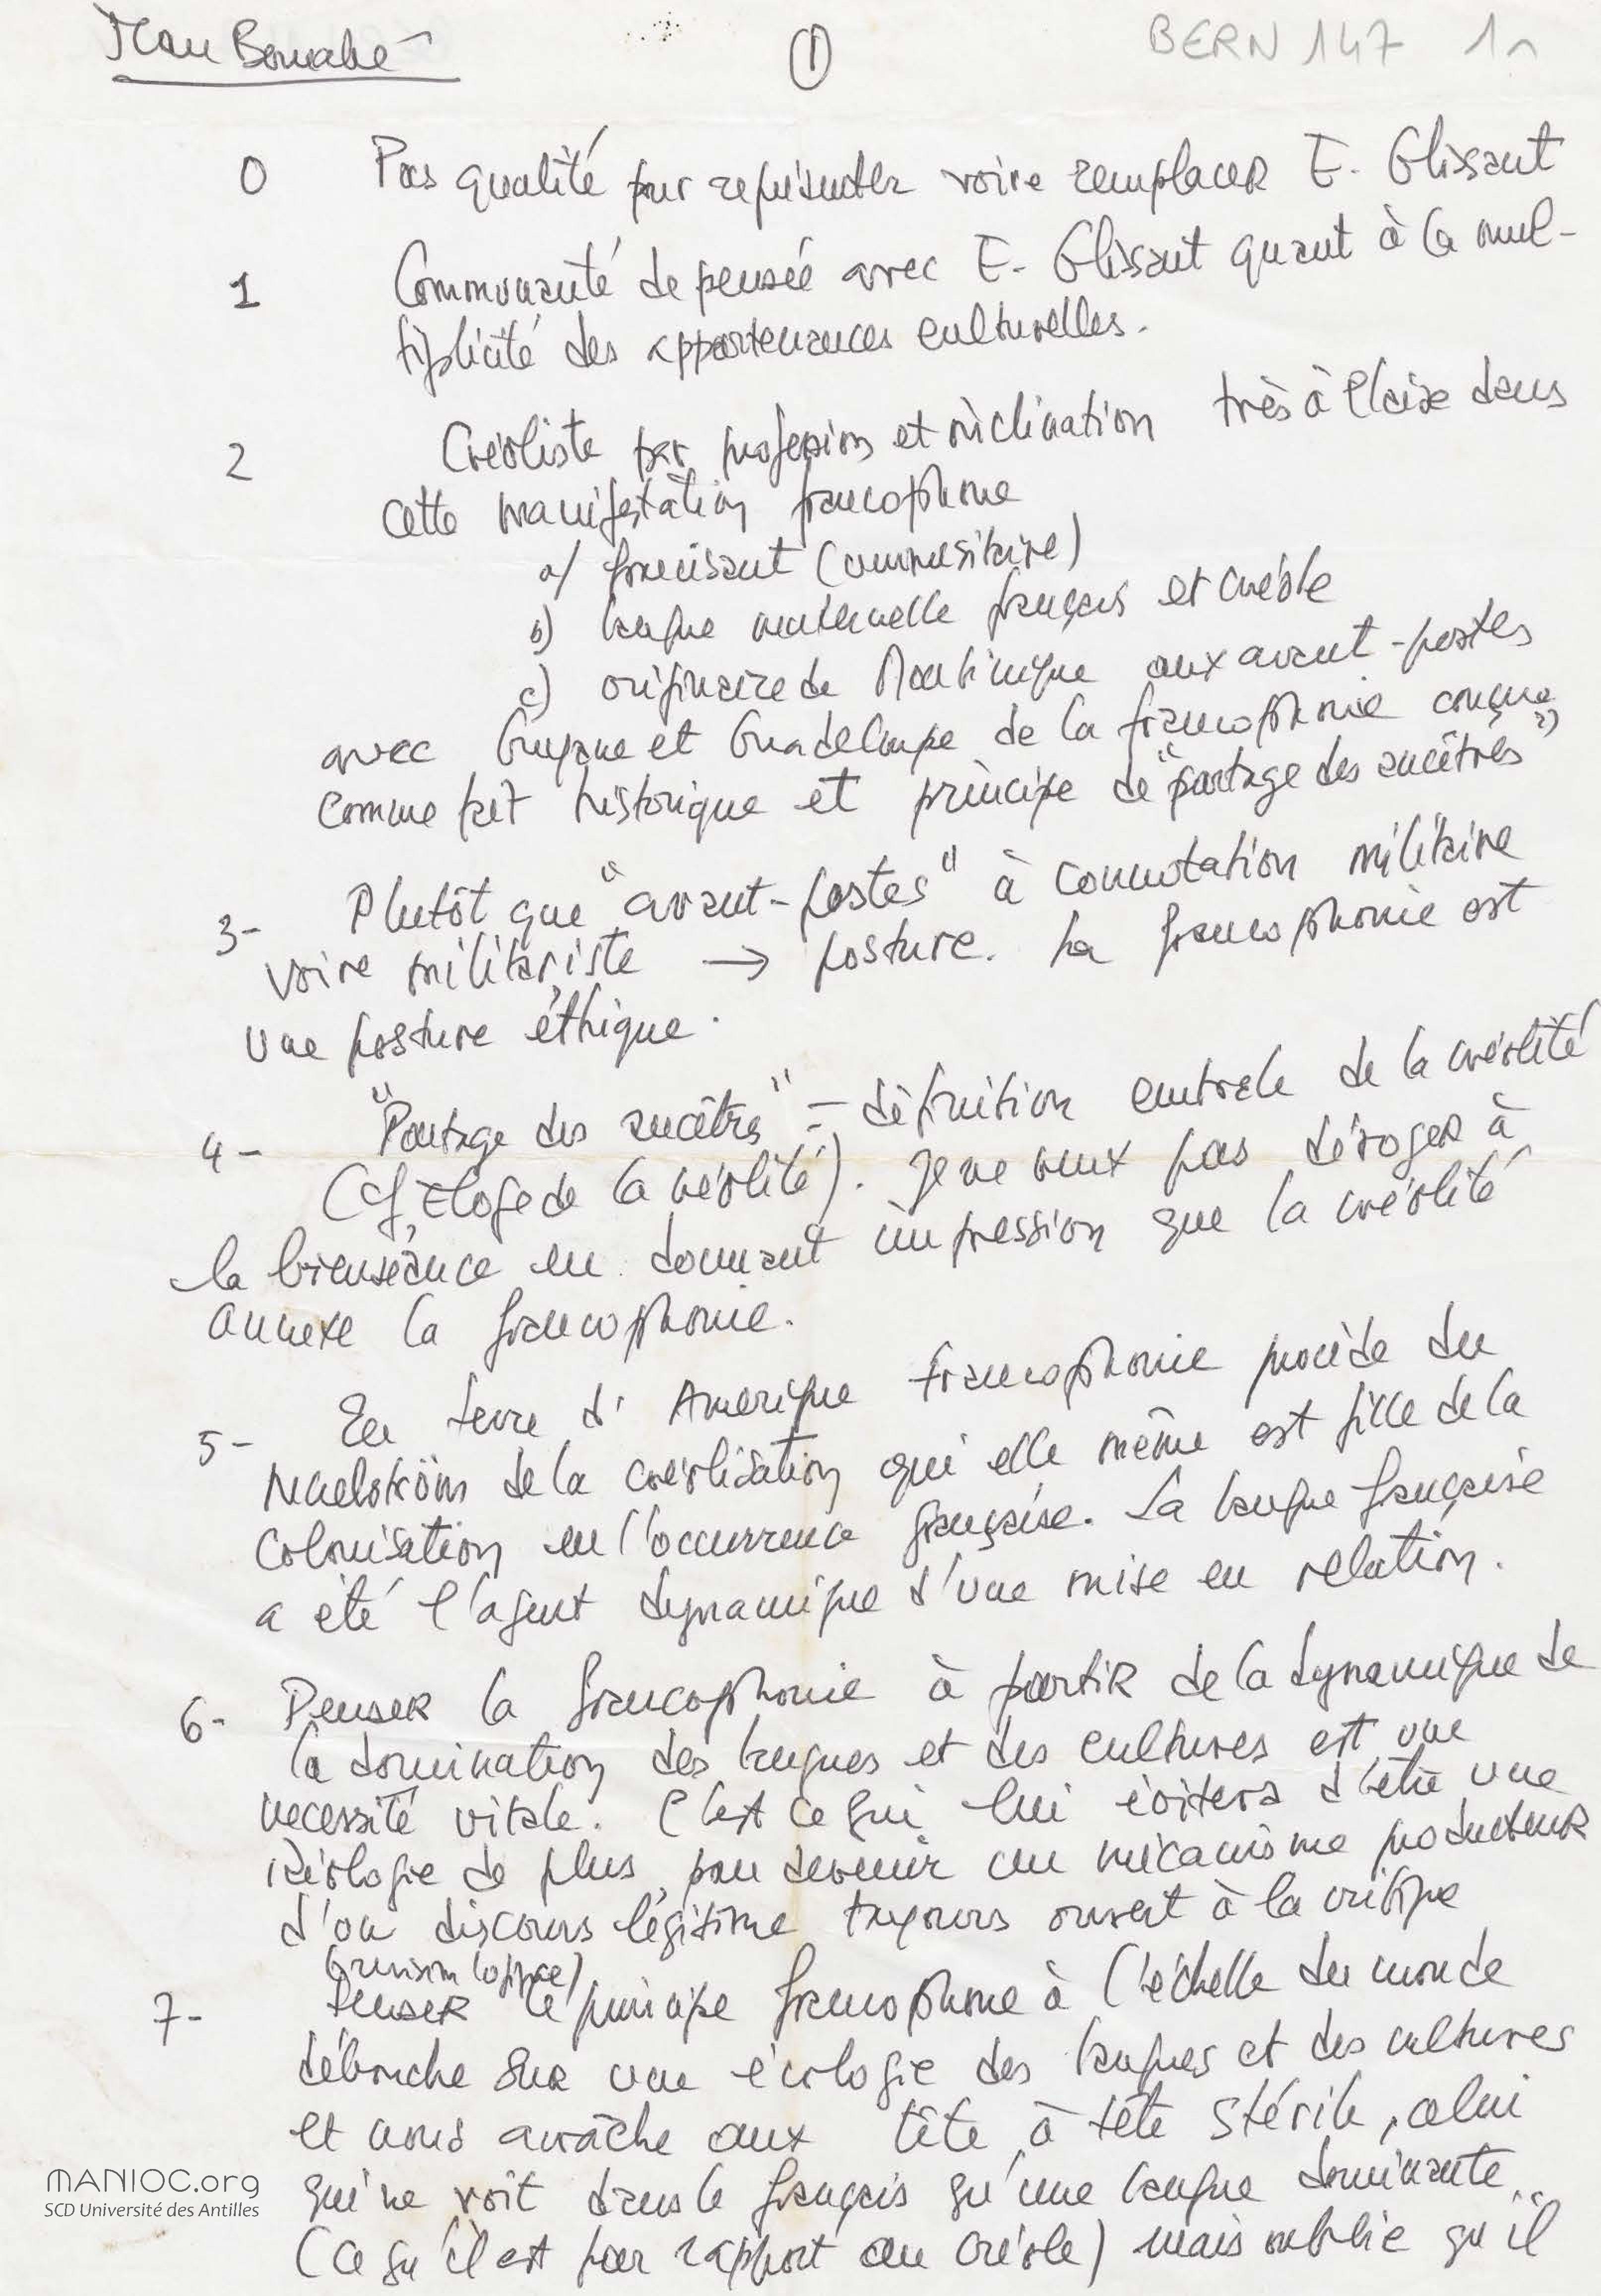 Jean Bernabé
①
BERN 147 1r
0 Pas qualité pour représenter voire remplacer E. Glissant
1 Communauté de pensée avec E. Glissant quant à la mul-
tiplicité des appartenances culturelles.
2 Créoliste par profession et inclination très à l'aise dans
cette manifestation francophone
a/ francisant (universitaire)
b) langue maternelle français et créole
c) originaire de Martinique aux avant-postes
avec Guyane et Guadeloupe de la francophonie conçue
comme fait historique et principe de "partage des ancêtres"
3- Plutôt que "avant-postes" à connotation militaire
voire militariste → posture. La francophonie est
une posture éthique.
4- "Partage des ancêtres" = définition centrale de la créolité
(cf, Eloge de la créolité). Je ne veux pas déroger à
la bienséance en donnant impression que la créolité
annexe la francophonie.
5- En terre d'Amérique francophonie procède du
Maelström de la créolisation qui elle même est fille de la
colonisation en l'occurrence française. La langue française
a été l'agent dynamique d'une mise en relation.
6- Penser la francophonie à partir de la dynamique de
la domination des langues et des cultures est une
nécessité vitale. C'est ce qui lui évitera d'être une
idéologie de plus, pour devenir un mécanisme producteur
d'un discours légitime toujours ouvert à la critique
7- Penser le principe francophone à l'échelle du monde
débouche sur une écologie des langues et des cultures
et nous arrâche aux tête à tête stérile, celui
qui ne voit dans le français qu'une langue dominante
(ce qu'il est par rapport au créole) mais oublie qu'il
MANIOC.org
SCD Université des Antilles